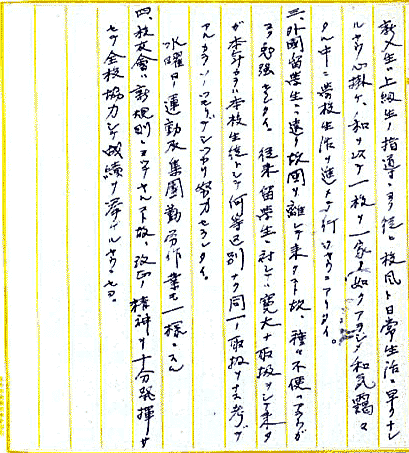 新入生ハ上級生ノ指導ニヨク従ヒ校風ト日常生活ニ早クナレ
ルヤウ心掛ケ、和ヲ以ケ一校ヲ一家ノ如クアラシメ和気靄々
タル中ニ学校生活ヲ進メテ行ケルヤウニアリタイ。
三、外国留学生ハ遠ク故国ヲ離レテ来タ下故、種々不便アラウガ
ヨク勉強セレタイ。従来留学生ニ対シテハ寛大ナ取扱ヲシテ来タ
ガ本年カラハ本校生徒トシテ何等区別ナク同一取扱ヲナス考デ
アルカラソノツモリデシッカリ努力セラレタイ。
水曜日ノ運動及集団勤労作業モ一様ニスル
四、校友会ハ新規則ニヨッテヤル下故、改正ノ精神ヲ十分発揮サ
セテ全校協力シテ成績ヲ挙ゲルヤウニセヨ。